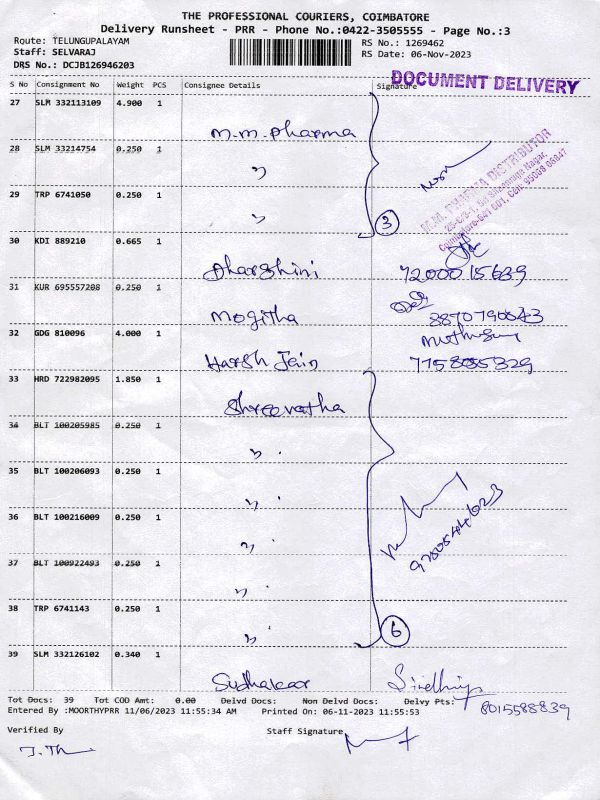 THE PROFESSIONAL COURIERS, COIMBATORE
Delivery Runsheet - PRR - Phone No.:0422-3505555 - Page No.:3
Route: TELUNGUPALAYAM
RS No.: 1269462
Staff: SELVARAJ
RS Date: 06-Nov-2023
DRS No.: DCJB126946203
DOCUMENT DELIVERY
S No Consignment No Weight PCS Consignee Details Signature
27 SLM 332113109 4.900 1
M.M. Pharma
28 SLM 33214754 0.250 1
"
29 TRP 6741050 0.250 1
"
3
M.M. PHARMA DISTRIBUTOR
30 KDI 889210 0.665 1
Dharshini
31 KUR 695557208 0.250 1
Mogitha
32 GDG 810096 4.000 1
Harsh Jain 7158085329
33 HRD 722982095 1.850 1
Shreevatha
34 BLT 100205985 0.250 1
"
35 BLT 100206093 0.250 1
"
36 BLT 100216009 0.250 1
"
37 BLT 100922493 0.250 1
"
38 TRP 6741143 0.250 1
"
6
39 SLM 332126102 0.340 1
Sudhakar
Tot Docs: 39 Tot COD Amt: 0.00 Delvd Docs: Non Delvd Docs: Delvy Pts:
8015588839
Entered By :MOORTHYPRR 11/06/2023 11:55:34 AM Printed On: 06-11-2023 11:55:53
Verified By
Staff Signature